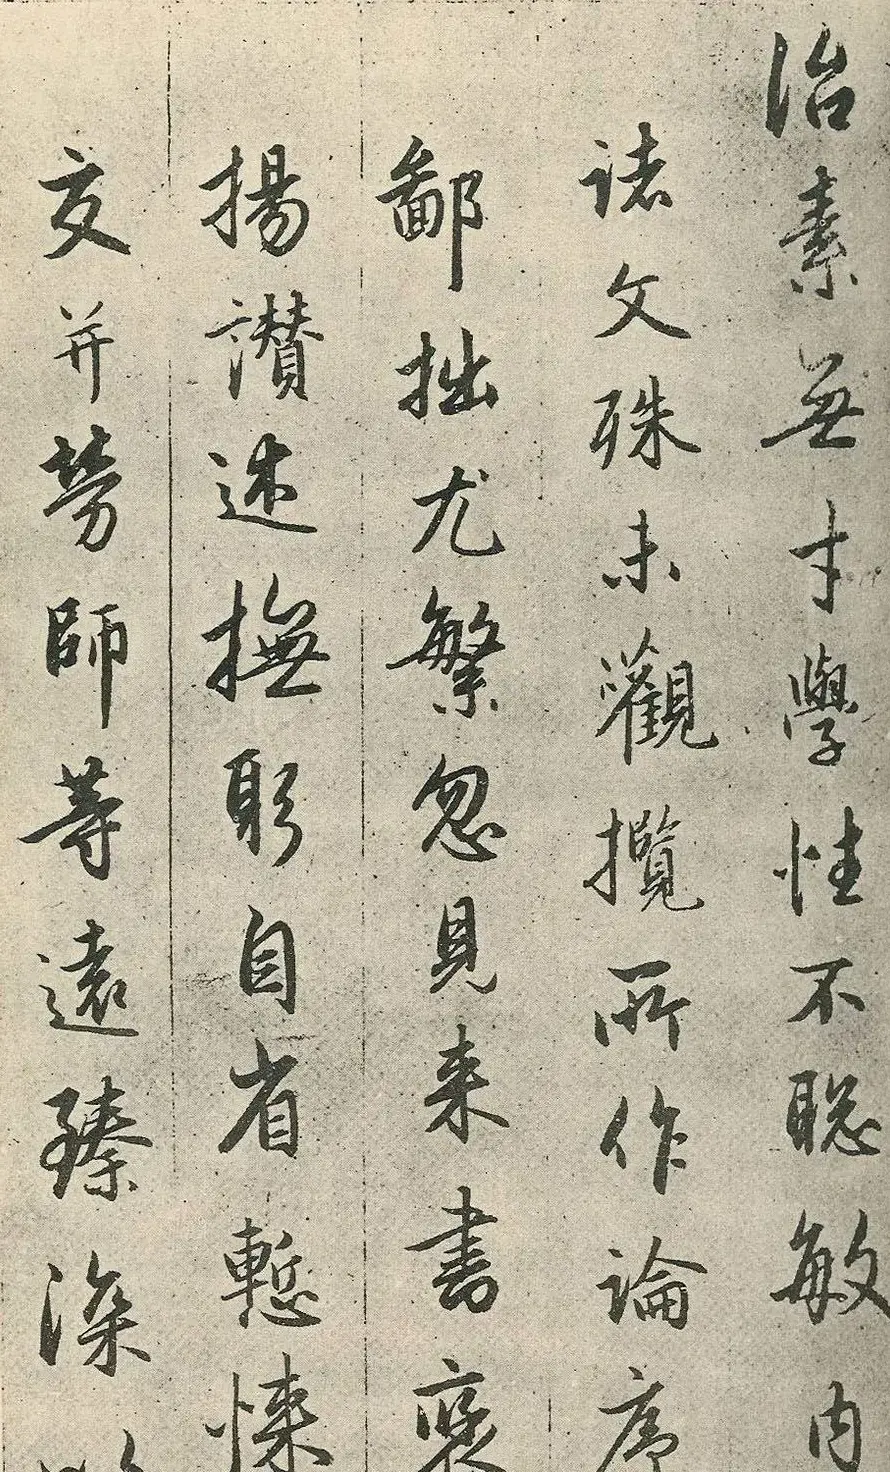 治素無才學性不聡敏内
諸文殊未觀攬所作論序
鄙拙尤繁忽見来書褒
揚讃述撫躬自省慙悚
交并勞師等遠臻深